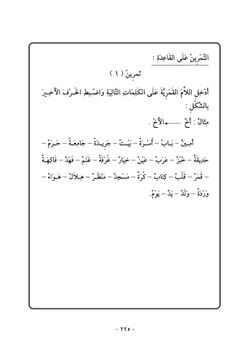 التَّمْرِينُ عَلَى القَاعِدَةِ :
تَمرِينُ ( ١ )
أَدْخِلِ اللاَّمَ القَمَرِيَّةَ عَلَى الكَلِمَاتِ التَّالِيَةِ وَاضْبِطِ الحَرْفَ الأَخِيرَ
بِالشَّكْلِ :
مِثَالٌ : أَخٌ ← الأَخُ .
أَمِينٌ – بَابٌ – أُسْرَةٌ – بَيْتٌ – جَرِيدَةٌ – جَامِعَةٌ – حَرَمٌ –
حَدِيقَةٌ – خُبْزٌ – عَرَبٌ – عَيْنٌ – خِيَارٌ – غُرْفَةٌ – غَنَمٌ – فَهْدٌ – فَاكِهَةٌ
– قَمَرٌ – قَلْبٌ – كِتَابٌ – كُرَةٌ – مَسْجِدٌ – مَنْظَرٌ – هِلاَلٌ – هَوَاءٌ –
وَرْدَةٌ – وَلَدٌ – يَدٌ – يَوْمٌ.
– ٢٢٥ –